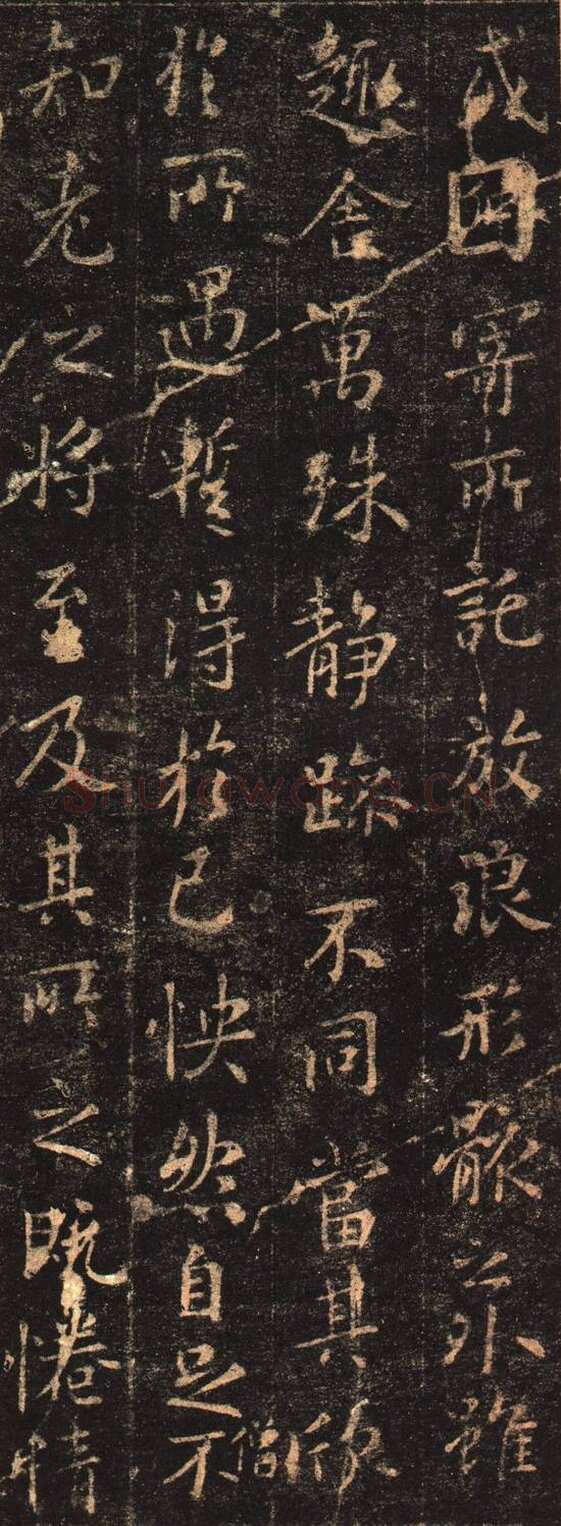 或因寄所託放浪形骸之外雖
趣舍萬殊静躁不同當其欣
僧
於所遇暫得於己怏然自足不
知老之將至及其所之既惓情
Shufawang.CN